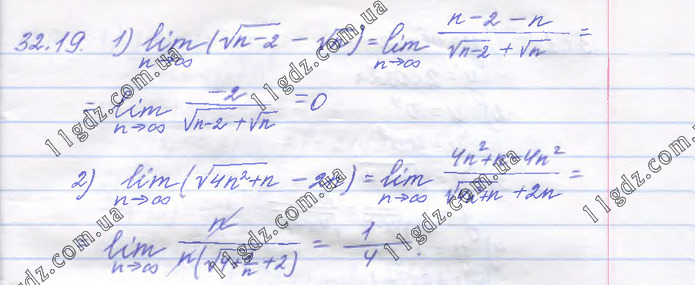 32.19. 1) lim n→∞ (√(n-2) - √n) = lim n→∞ (n-2-n)/(√(n-2) + √n) =
= lim n→∞ (-2)/(√(n-2) + √n) = 0
2) lim n→∞ (√(4n²+n) - 2n) = lim n→∞ (4n²+n-4n²)/(√(4n²+n) + 2n) =
= lim n→∞ n/(n(√(4+1/n) + 2)) = 1/4.
11gdz.com.ua
11gdz.com.ua
11gdz.com.ua
11gdz.com.ua
11gdz.com.ua
11gdz.com.ua